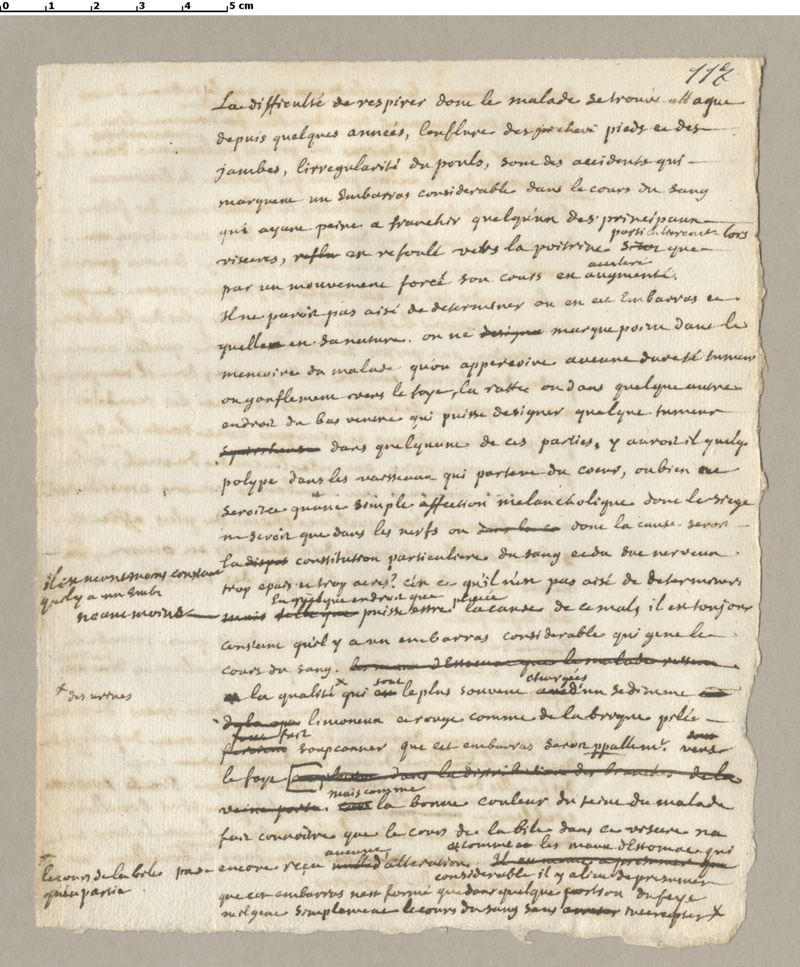 0 1 2 3 4 5 cm
112
La difficulté de respirer dont le malade se trouve attaqué
depuis quelques années, l'enflure des pieds et des
jambes, l'irregularité du pouls, sont des accidents qui
marquent un Embarras considerable dans le cours du sang
qui ayant peine a franchir quelqu'un des principaux
particulierement lors
visceres, reflu est refoulé vers la poitrine que
acceleré
par un mouvement forcé son cours est augmenté.
Il ne paroit pas aisé de determiner ou est cet Embarras et
quelle en sa nature. on ne designe marque point dans le
memoire du malade qu'on appercoive aucune dureté tumeur
ou gonflement vers le foye, la ratte ou dans quelque autre
endroit du bas ventre qui puisse designer quelque tumeur
squirrheuse dans quelqu'une de ces parties, y auroit il quelq
polype dans les vaisseaux qui partent du coeur, ou bien ne
seroit ce qu'une simple affection melancholique dont le siege
ne seroit que dans les nerfs ou dans la dont la cause seroit
la constitution particuliere du sang et du suc nerveux
trop epais et trop acres? c'est ce qu'il n'est pas aisé de determiner
il est neantmoins constant
qu'il y a un Emb
En quelque endroit que placée
neantmoins mais telle que puisse estre la cause de ce mal, il est toujour
constant qu'il y a un embarras considerable qui gene le
cours du sang. les maux d'Estomac que le malade ressent
sont chargées
la qualité x qui est le plus souvent d'un sediment
x des urines
de la limoneux et rouge comme de la brique pilée
font
soupconner que cet embarras seroit ppallemt. vers
le foye dans la distribution des branches de la
mais comme
veine porte. la bonne couleur du teint du malade
fait connoitre que le cours de la bile dans ce viscere n'a
aucune et comme les maux d'Estomac qui
pas encore reçu d'alteration. Il
le cours de la bile
qu'en partie
considerable il y a lieu de presumer
que cet embarras n'est formé que dans quelque portion du foye
et qu'il gene simplement le cours du sang sans intercepter x